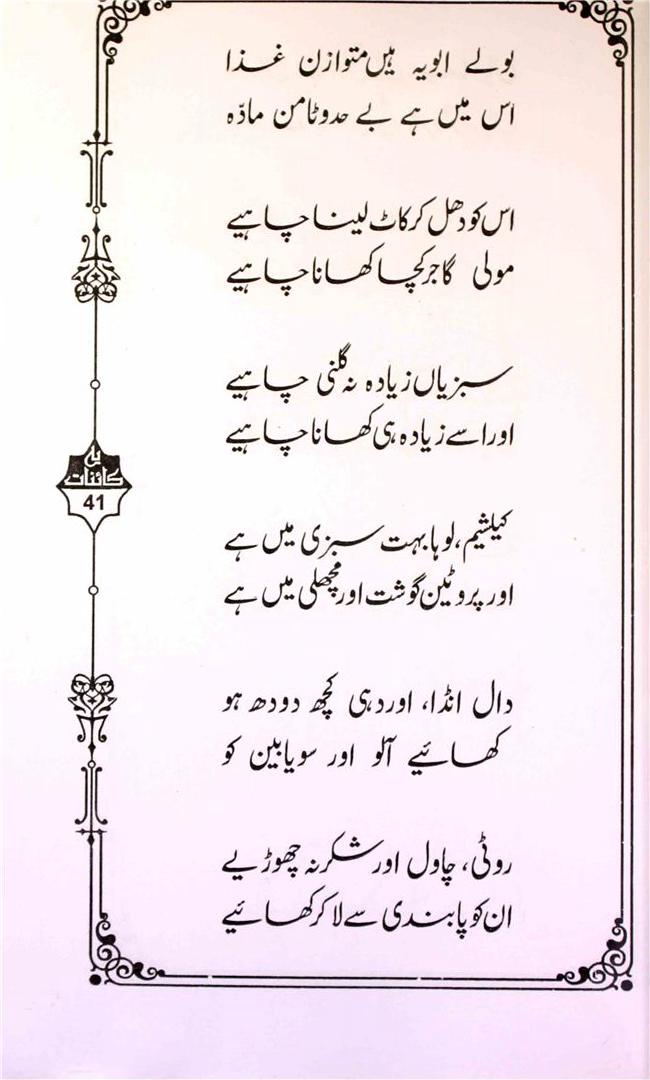 بولے ابو یہ ہیں متوازن غذا
اس میں ہے بے حد وٹامن مادّہ
اس کو دھل کر کاٹ لینا چاہیے
مولی گاجر کچا کھانا چاہیے
سبزیاں زیادہ نہ گلنی چاہیے
اور اسے زیادہ ہی کھانا چاہیے
یہ کائنات
41
کیلشیم، لوہا بہت سبزی میں ہے
اور پروٹین گوشت اور مچھلی میں ہے
دال انڈا، اور دہی کچھ دودھ ہو
کھائیے آلو اور سویابین کو
روٹی، چاول اور شکر نہ چھوڑیے
ان کو پابندی سے لا کر کھائیے